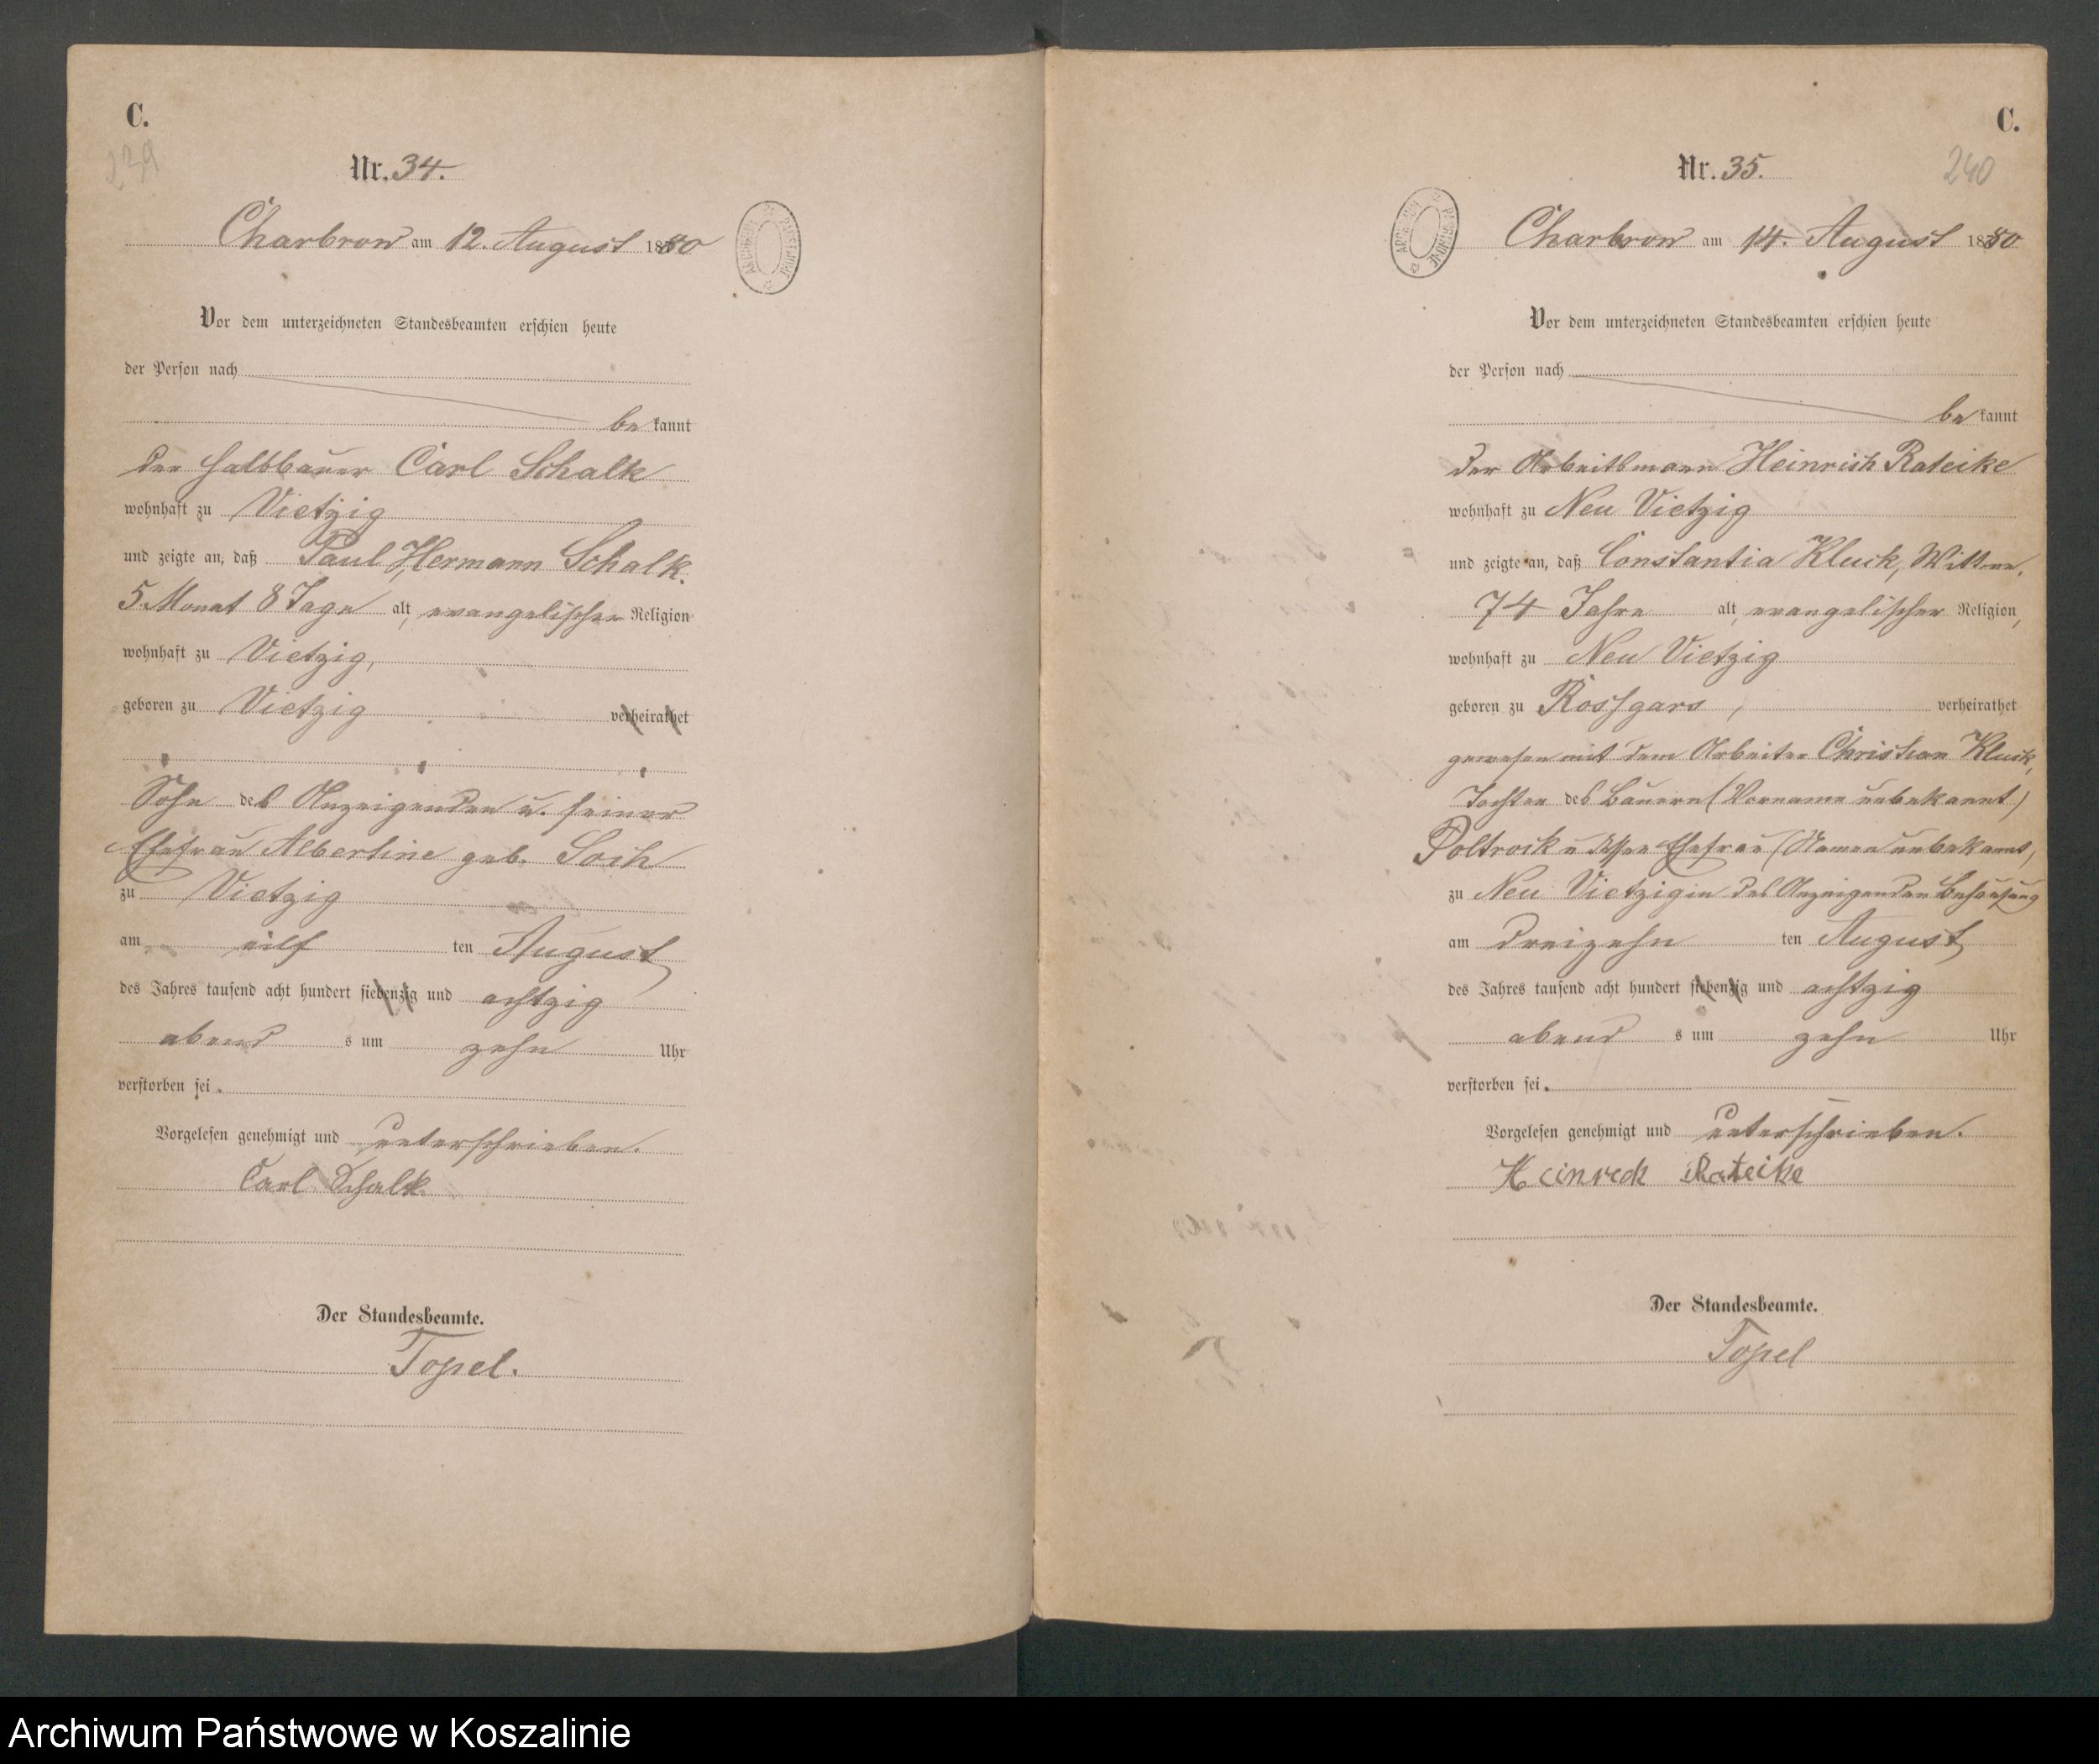 C.
239
Nr. 34.
Charbrow am 12. August 1880
ARCHIWUM PAŃSTWOWE
Vor dem unterzeichneten Standesbeamten erschien heute
der Person nach
be kannt
der Halbbauer Carl Schalk
wohnhaft zu Vietzig
und zeigte an, daß Paul Hermann Schalk.
5 Monat 8 Tage alt, evangelischer Religion
wohnhaft zu Vietzig,
geboren zu Vietzig verheirathet
Sohn des Anzeigenden u. seiner
Ehefrau Albertine geb. Soih
zu Vietzig
am eilf ten August
des Jahres tausend acht hundert siebenzig und achtzig
abend s um zehn Uhr
verstorben sei.
Vorgelesen genehmigt und unterschrieben.
Carl Schalk
Der Standesbeamte.
Topel.
C.
240
Nr. 35.
Charbrow am 14. August 1880
ARCHIWUM PAŃSTWOWE
Vor dem unterzeichneten Standesbeamten erschien heute
der Person nach
be kannt
der Arbeitsmann Heinrich Rateike
wohnhaft zu Neu Vietzig
und zeigte an, daß Constantia Kluck, Wittwe,
74 Jahre alt, evangelischer Religion,
wohnhaft zu Neu Vietzig
geboren zu Rossgars, verheirathet
gewesen mit dem Arbeiter Christian Kluck,
Tochter des Bauern (Vorname unbekannt)
Poltrock u dessen Ehefrau (Namen unbekannt,
zu Neu Vietzig in des Anzeigenden Behausung
am dreizehn ten August
des Jahres tausend acht hundert siebenzig und achtzig
abend s um zehn Uhr
verstorben sei.
Vorgelesen genehmigt und unterschrieben.
Heinrch Rateike
Der Standesbeamte.
Topel
Archiwum Państwowe w Koszalinie